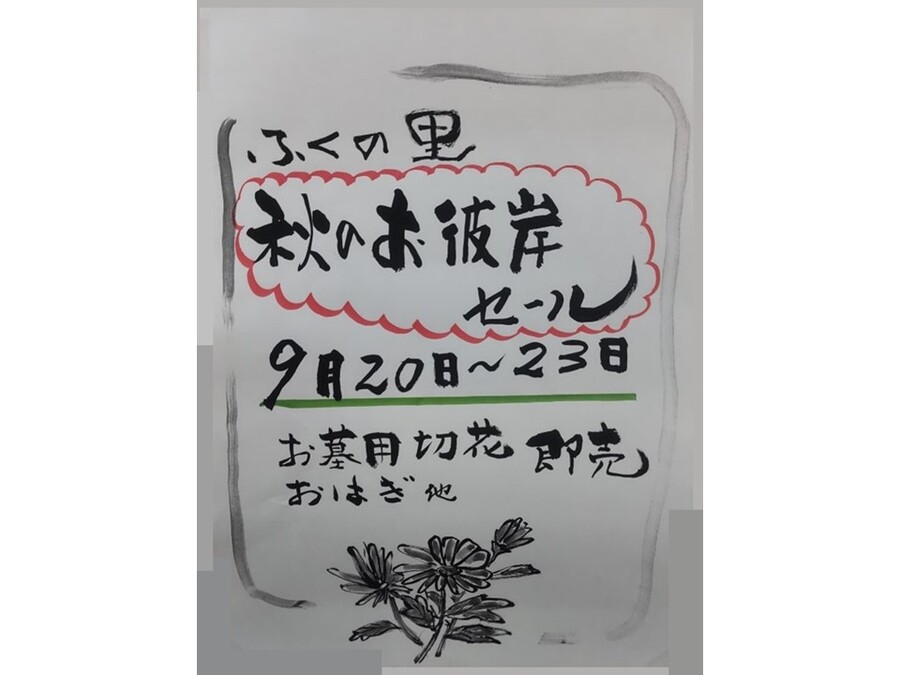 ふくの里
秋のお彼岸
セール
9月20日～23日
お墓用切花 即売
おはぎ他